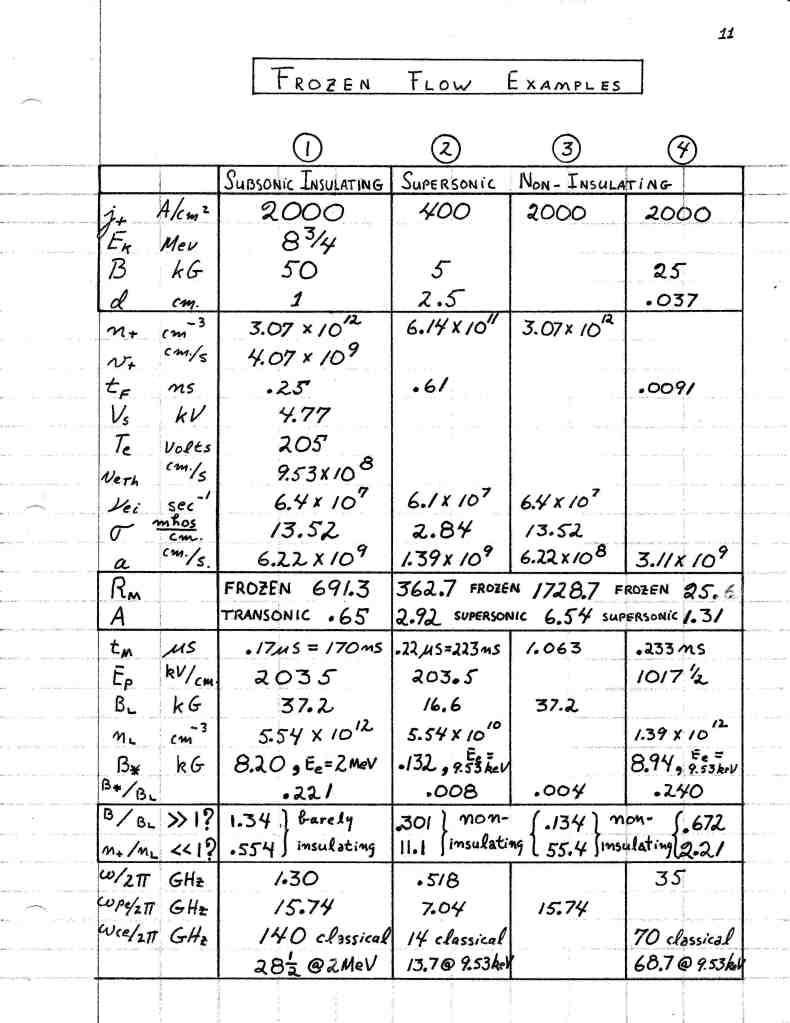 11
FROZEN FLOW EXAMPLES
① ② ③ ④
SUBSONIC INSULATING SUPERSONIC NON-INSULATING
j+ A/cm² 2000 400 2000 2000
EK Mev 8 3/4
B kG 50 5 25
d cm. 1 2.5 .037
n+ cm⁻³ 3.07 × 10¹² 6.14 × 10¹¹ 3.07 × 10¹²
v+ cm/s 4.07 × 10⁹
tF ns .25 .61 .0091
Vs kV 4.77
Te Volts 205
veth cm/s 9.53 × 10⁸
νei sec⁻¹ 6.4 × 10⁷ 6.1 × 10⁷ 6.4 × 10⁷
σ mhos/cm. 13.52 2.84 13.52
a cm/s. 6.22 × 10⁹ 1.39 × 10⁹ 6.22 × 10⁸ 3.11 × 10⁹
RM FROZEN 691.3 362.7 FROZEN 1728.7 FROZEN 25.6
A TRANSONIC .65 2.92 SUPERSONIC 6.54 SUPERSONIC 1.31
tM μs .17μs = 170ns .22μs=223ns 1.063 .233ns
Ep kV/cm. 2035 203.5 1017 1/2
BL kG 37.2 16.6 37.2
nL cm⁻³ 5.54 × 10¹² 5.54 × 10¹⁰ 1.39 × 10¹²
B* kG 8.20, Ee=2MeV .132, Ee= 9.53 keV 8.94, Ee= 9.53keV
B*/BL .221 .008 .004 .240
B/BL >> 1? 1.34 } barely .301 } non- { .134 } non- { .672
n+/nL << 1? .554 } insulating 11.1 } insulating { 55.4 } insulating { 2.21
ω/2π GHz 1.30 .518 35
ωpe/2π GHz 15.74 7.04 15.74
ωce/2π GHz 140 classical 14 classical 70 classical
28 1/2 @ 2MeV 13.7 @ 9.53keV 68.7 @ 9.53keV